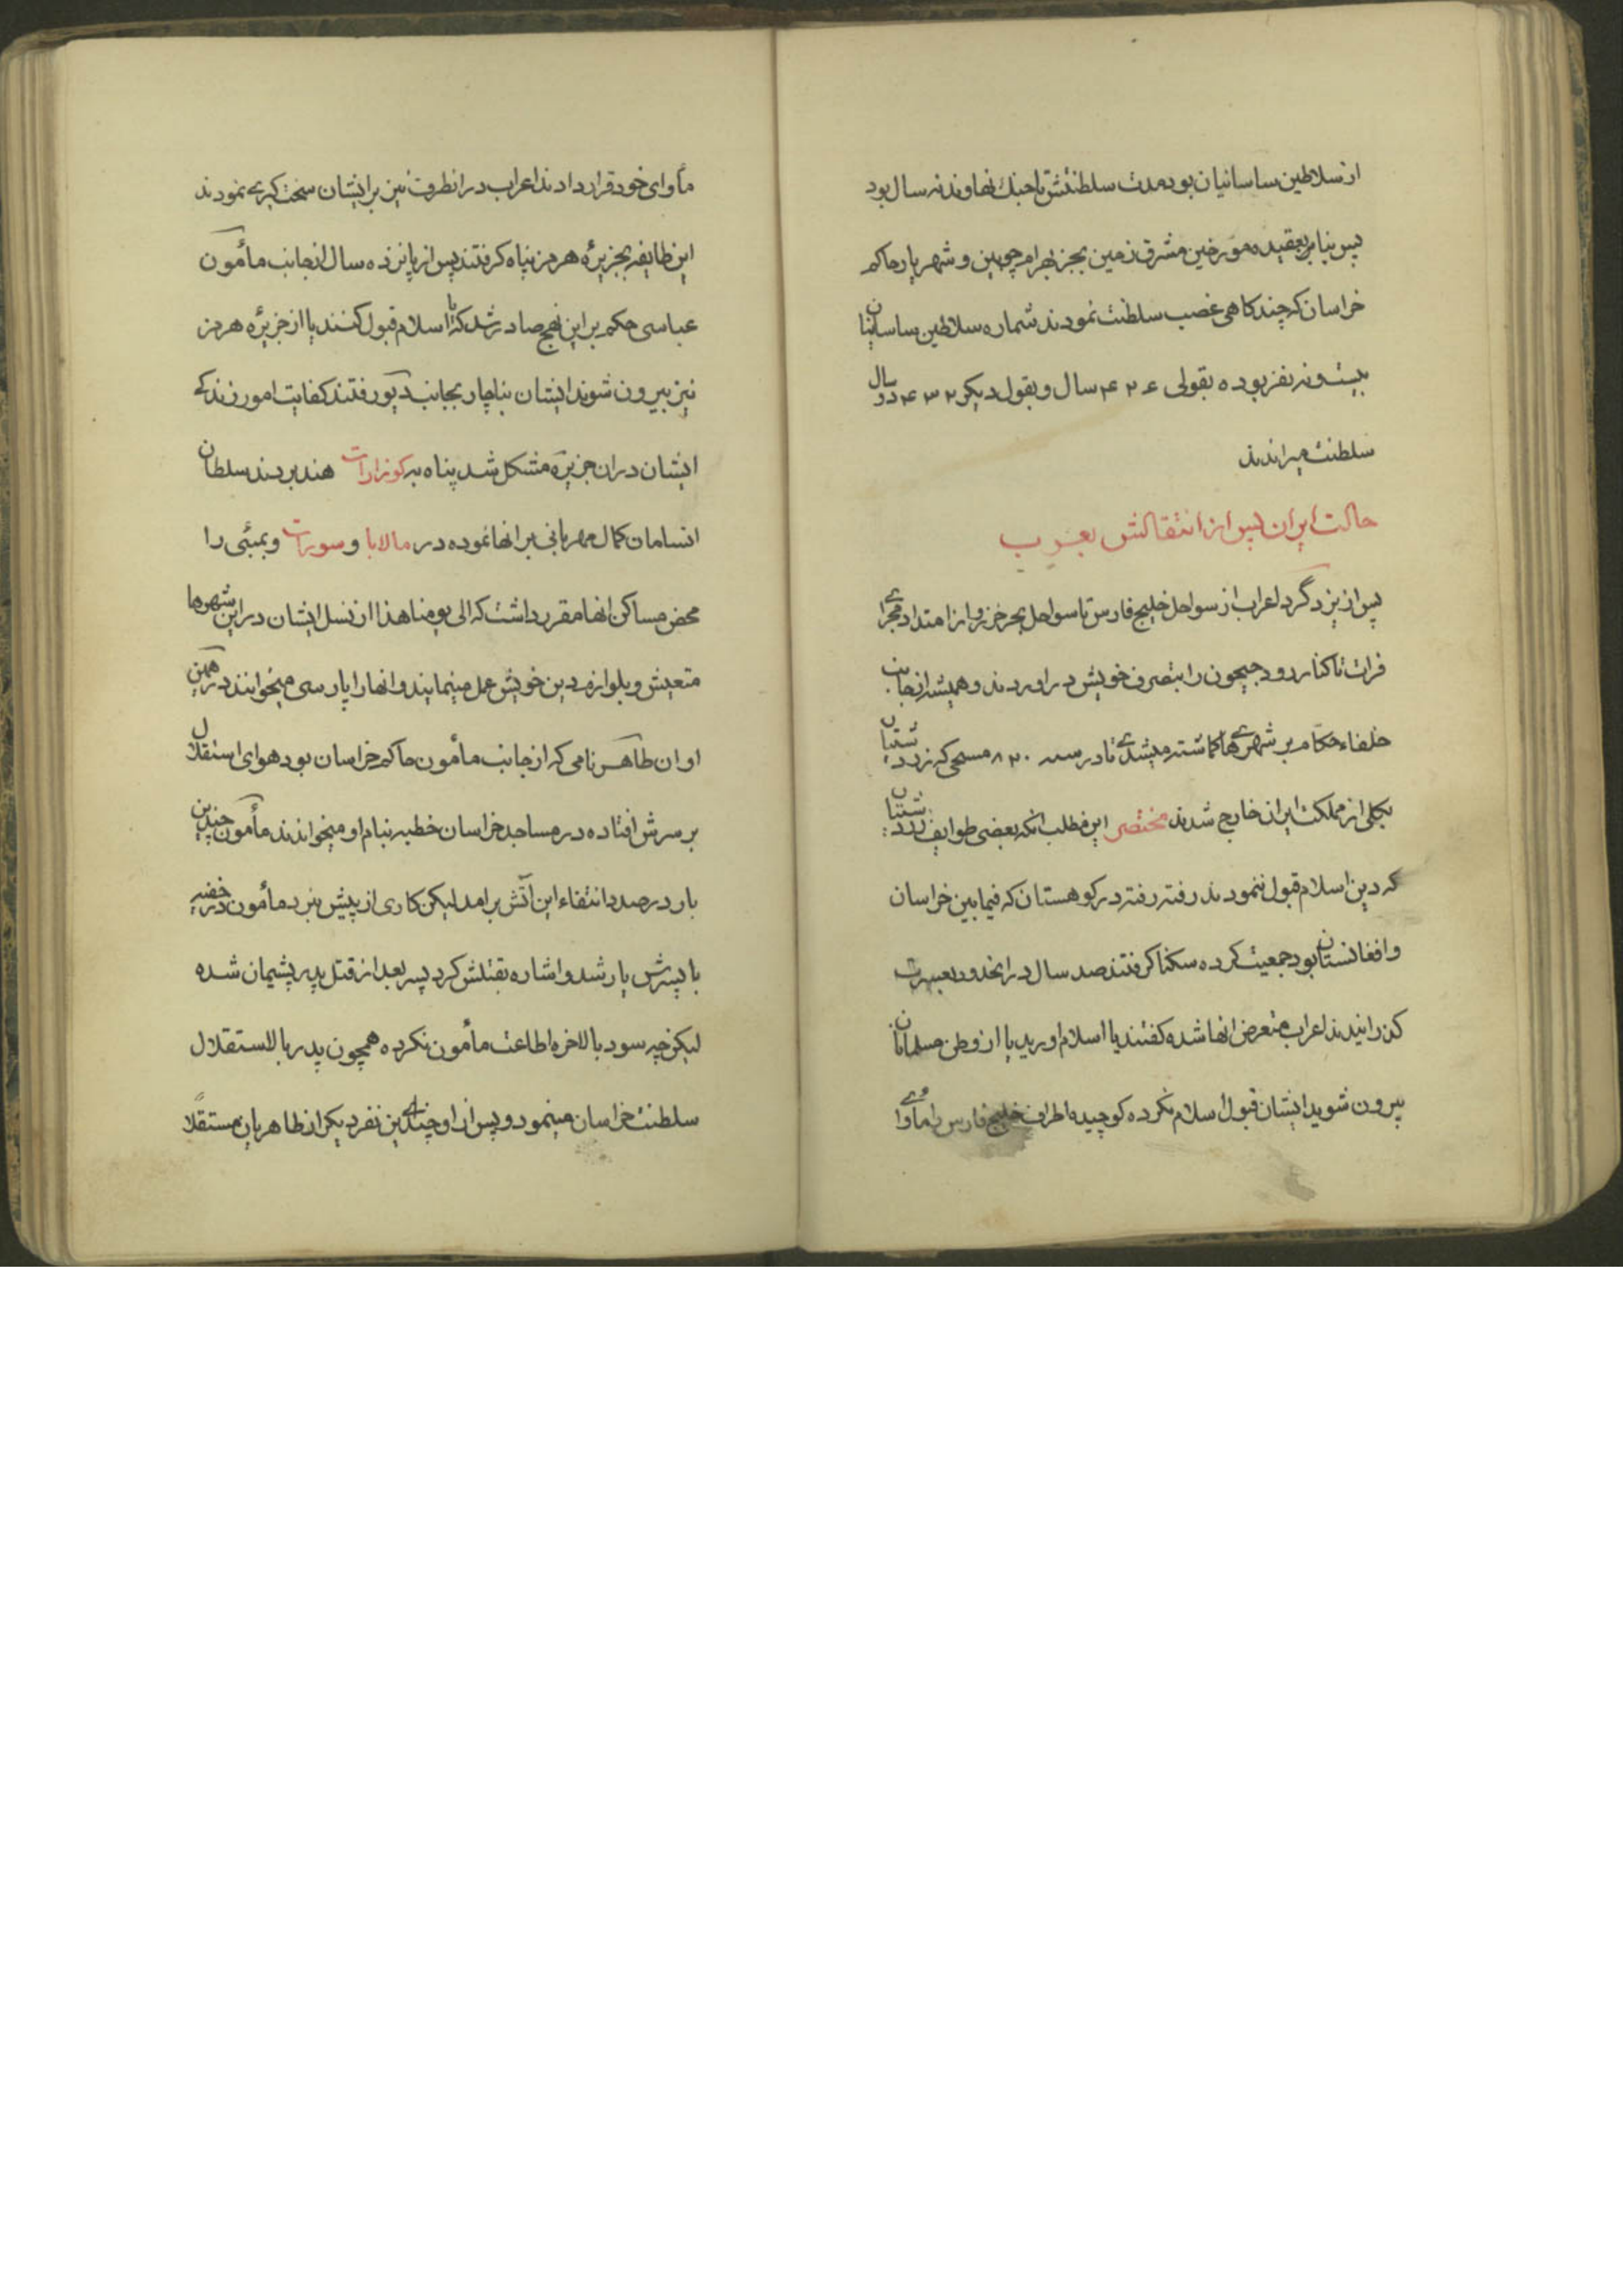 از سلاطین ساسانیان بود مدت سلطنتش تا جنك نهاوند نه سال بود
پس بنابر بعقیده مورخین مشرق زمین بجز بهرام چوبین و شهریار حاکم
خراسان که چند کاهی غصب سلطنت نمودند شماره سلاطین ساسانیان
بیست و نه نفر بوده بقولی ۴۲۴ سال و بقول دیکر ۴۳۲ سال در
سلطنت میراندند
حالت ایران پس از انتقالش بعرب
پس از یزدگرد اعراب از سواحل خلیج فارس تا سواحل بحر خزر و از امتداد مجرای
فرات تا کنار رود جیحون را بتصرف خویش دراوردند و همیشه از جانب
خلفاء حکام بر شهرهای کماشته میشدی تا در سنه ۸۲۰ مسیحی که زردشتیان
بکلی از مملکت ایران خارج شدند مختصر این مطلب انکه بعضی طوایف زردشتیان
که دین اسلام قبول ننمودند رفته رفته در کوهستان که فیما بین خراسان
و افغانستان بود جمعیت کرده سکنا کرفتند صد سال در انحدود بعسرت
کذرانیدند اعراب متعرض انها شده کفتند یا اسلام اورید یا از وطن مسلمانان
بیرون شوید ایشان قبول اسلام نکرده کوچیده اطراف خلیج فارس را
مأوای خود قرار دادند اعراب در انطرف نیز بر ایشان سخت کیری نمودند
این طایفه بجزیرهٔ هرمز پناه کرفتند پس از پانزده سال از جانب مأمون
عباسی حکم بر این نهج صادر شد که یا اسلام قبول کنند یا از جزیرهٔ هرمز
نیز بیرون شوند ایشان بناچار بجانب دیو رفتند کفایت امور زندکی
ایشان دران جزیره مشکل شد پناه به کوزارات هند بردند سلطان
انسامان کمال مهربانی بر انها نموده در مالابا و سورات و بمبئی را
محض مساکن انها مقرر داشت که الی یومنا هذا از نسل ایشان در این شهرها
متعیش و بلوازم دین خویش عمل مینمایند و انها را پارسی میخوانند در همین
اوان طاهر نامی که از جانب مأمون حاکم خراسان بود هوای استقلال
بر سرش افتاده در مساجد خراسان خطبه بنام او میخواندند مأمون چندین
بار در صدد انتقاء این آتش برامد لیکن کاری از پیش نبرد مأمون در خفیه
با پسرش یار شد و اشاره بقتلش کرد پسر بعد از قتل پدر پشیمان شده
لیکن چه سود بالاخره اطاعت مأمون نکرده همچون پدر بالاستقلال
سلطنت خراسان مینمود و پس از او چندین نفر دیکر از طاهریان مستقلاً